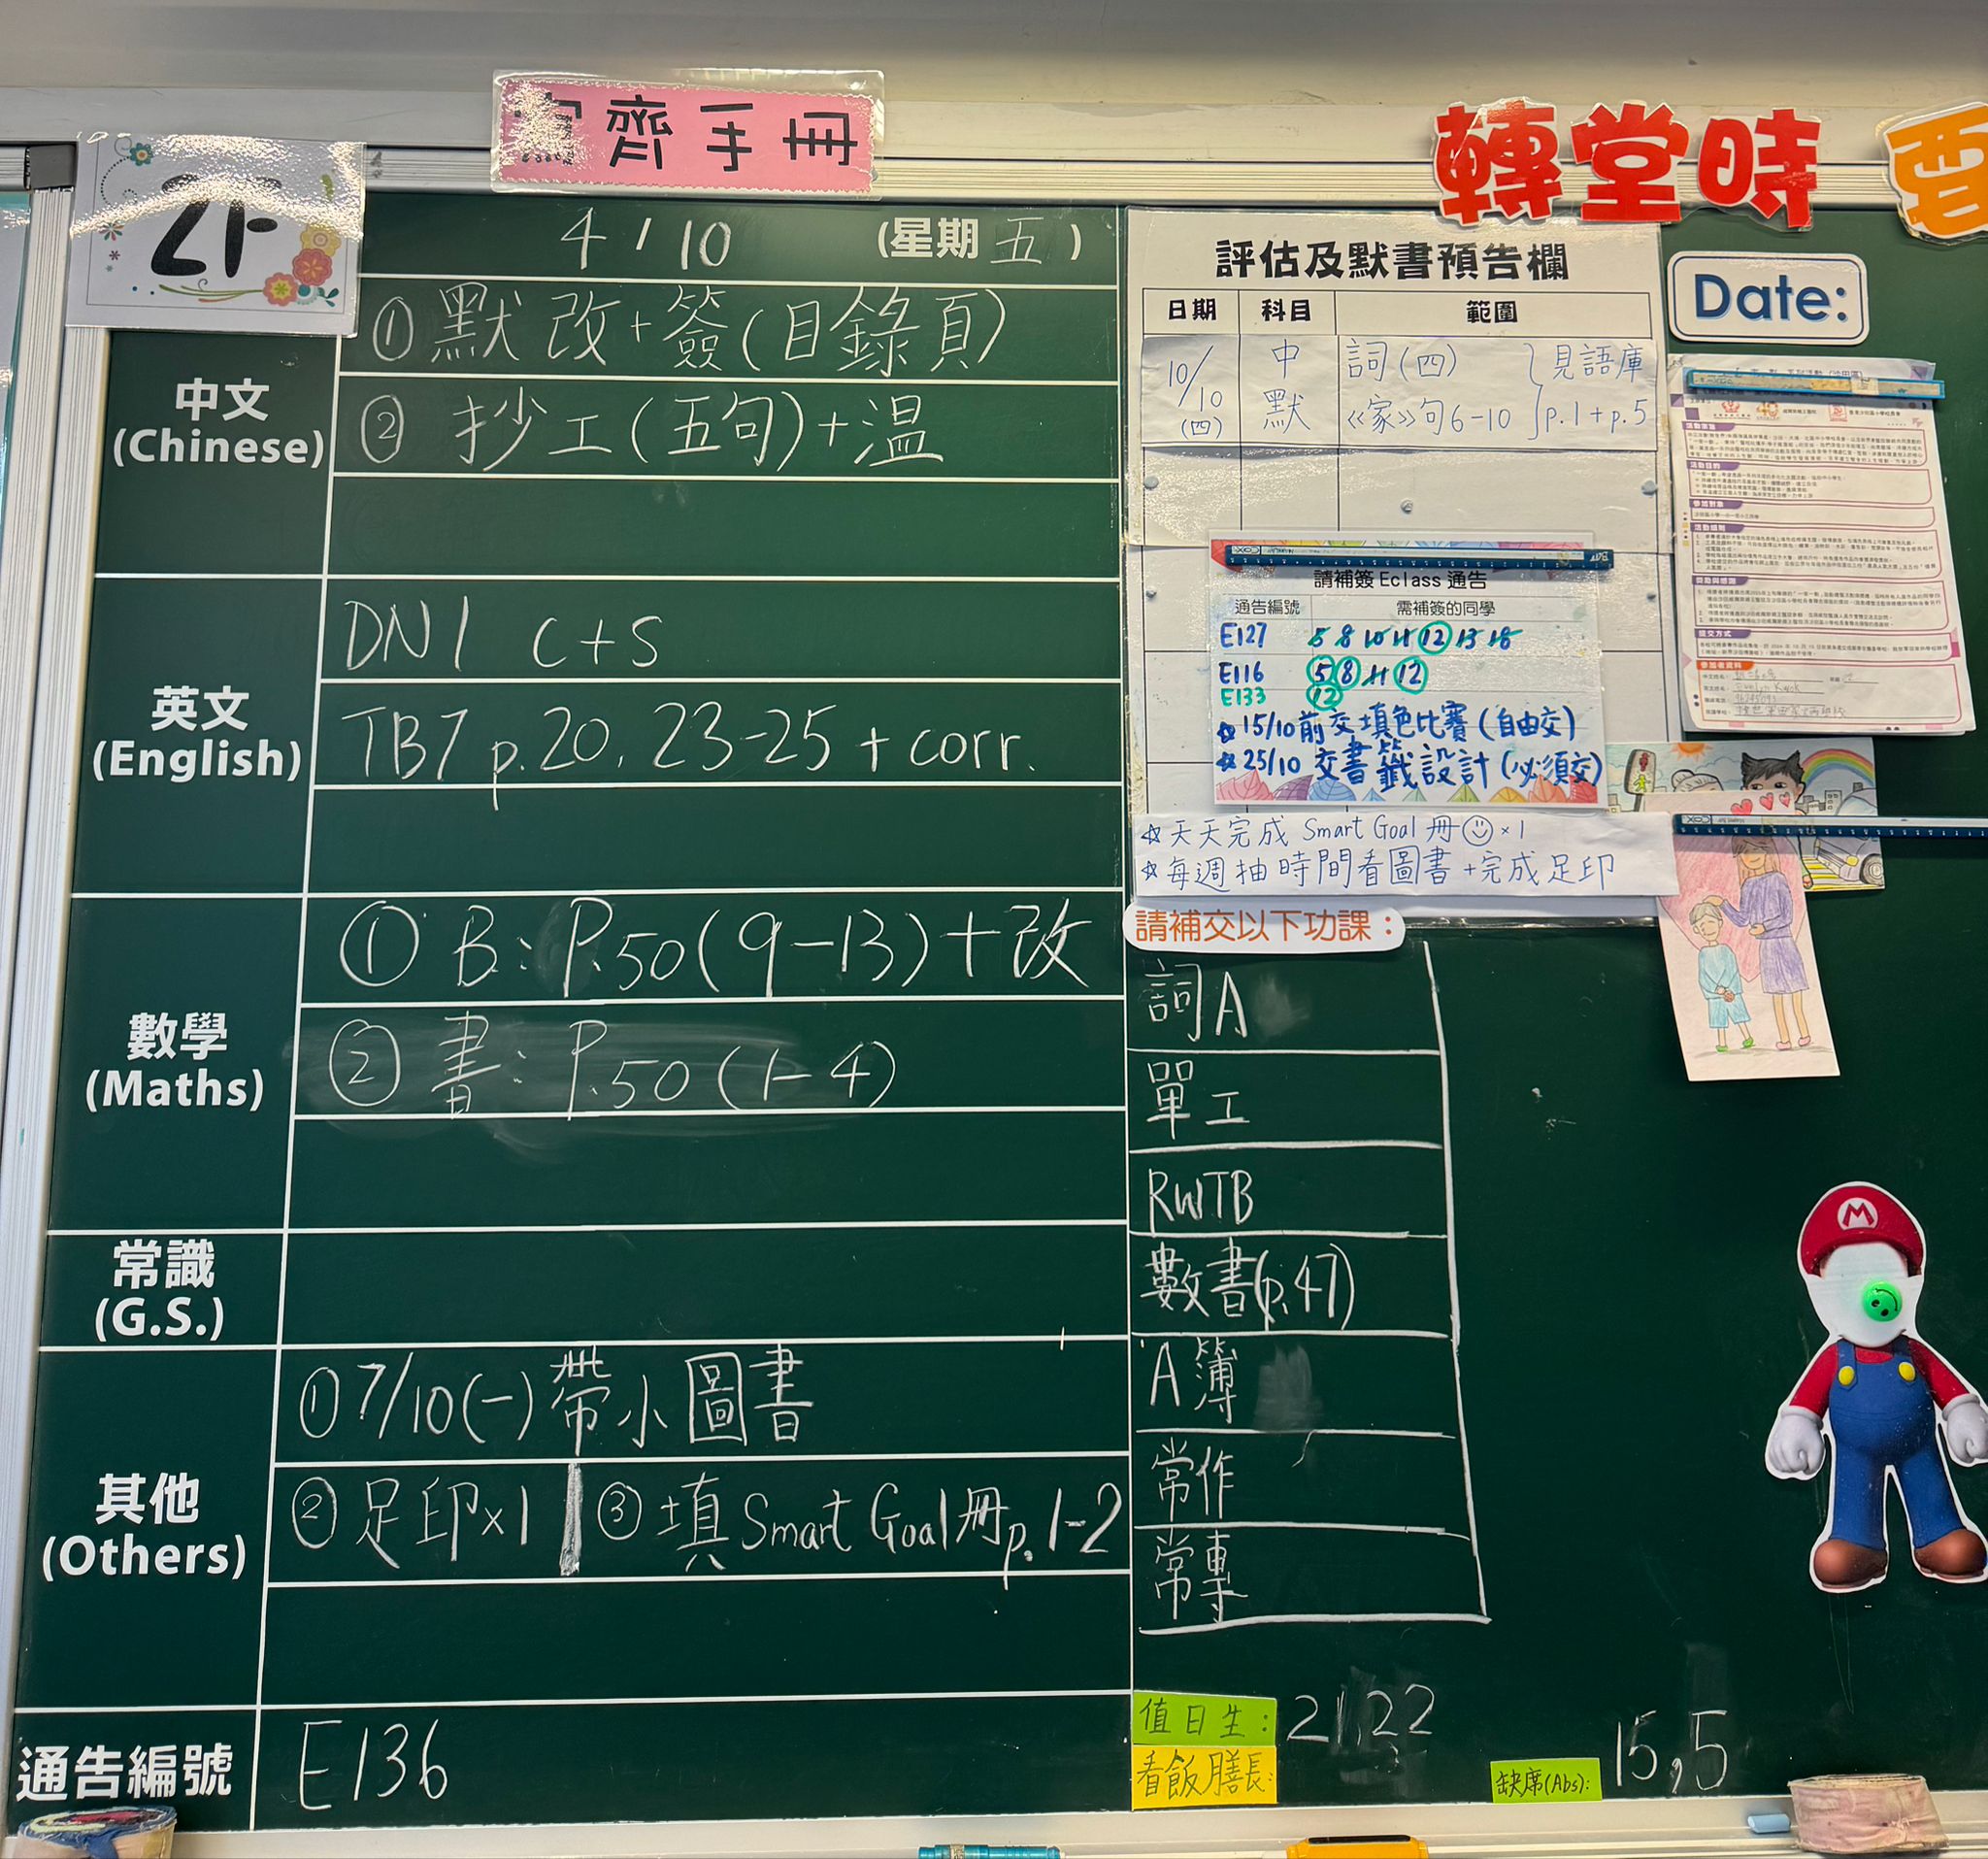 齊手冊
轉堂時要
2F
4/10 (星期五)
中文
(Chinese)
①默改+簽(目錄頁)
② 抄工(五句)+温
英文
(English)
DN1 C+S
TB7 p.20, 23-25 + corr.
數學
(Maths)
① B: P.50(9-13)+改
② 書: P.50(1-4)
常識
(G.S.)
其他
(Others)
①7/10(一)帶小圖書
②足印×1 ③填Smart Goal冊p.1-2
通告編號
E136
評估及默書預告欄
日期 科目 範圍
10/10(四) 中默 詞(四) 《家》句6-10 見語庫p.1+p.5
請補簽 Eclass 通告
通告編號 需補簽的同學
E127 5 8 10 11 12 13 18
E116 5 8 11 12
E133 12
☆15/10前交填色比賽(自由交)
☆25/10 交書籤設計(必須交)
☆天天完成 Smart Goal 冊☺×1
☆每週抽時間看圖書+完成足印
請補交以下功課：
詞A
單工
RWTB
數書(p.47)
A簿
常作
常專
值日生： 21,22
看飯膳長：
缺席(Abs): 15,5
Date:
活動目的
參加對象
活動細則
提交方式
參加者資料
M